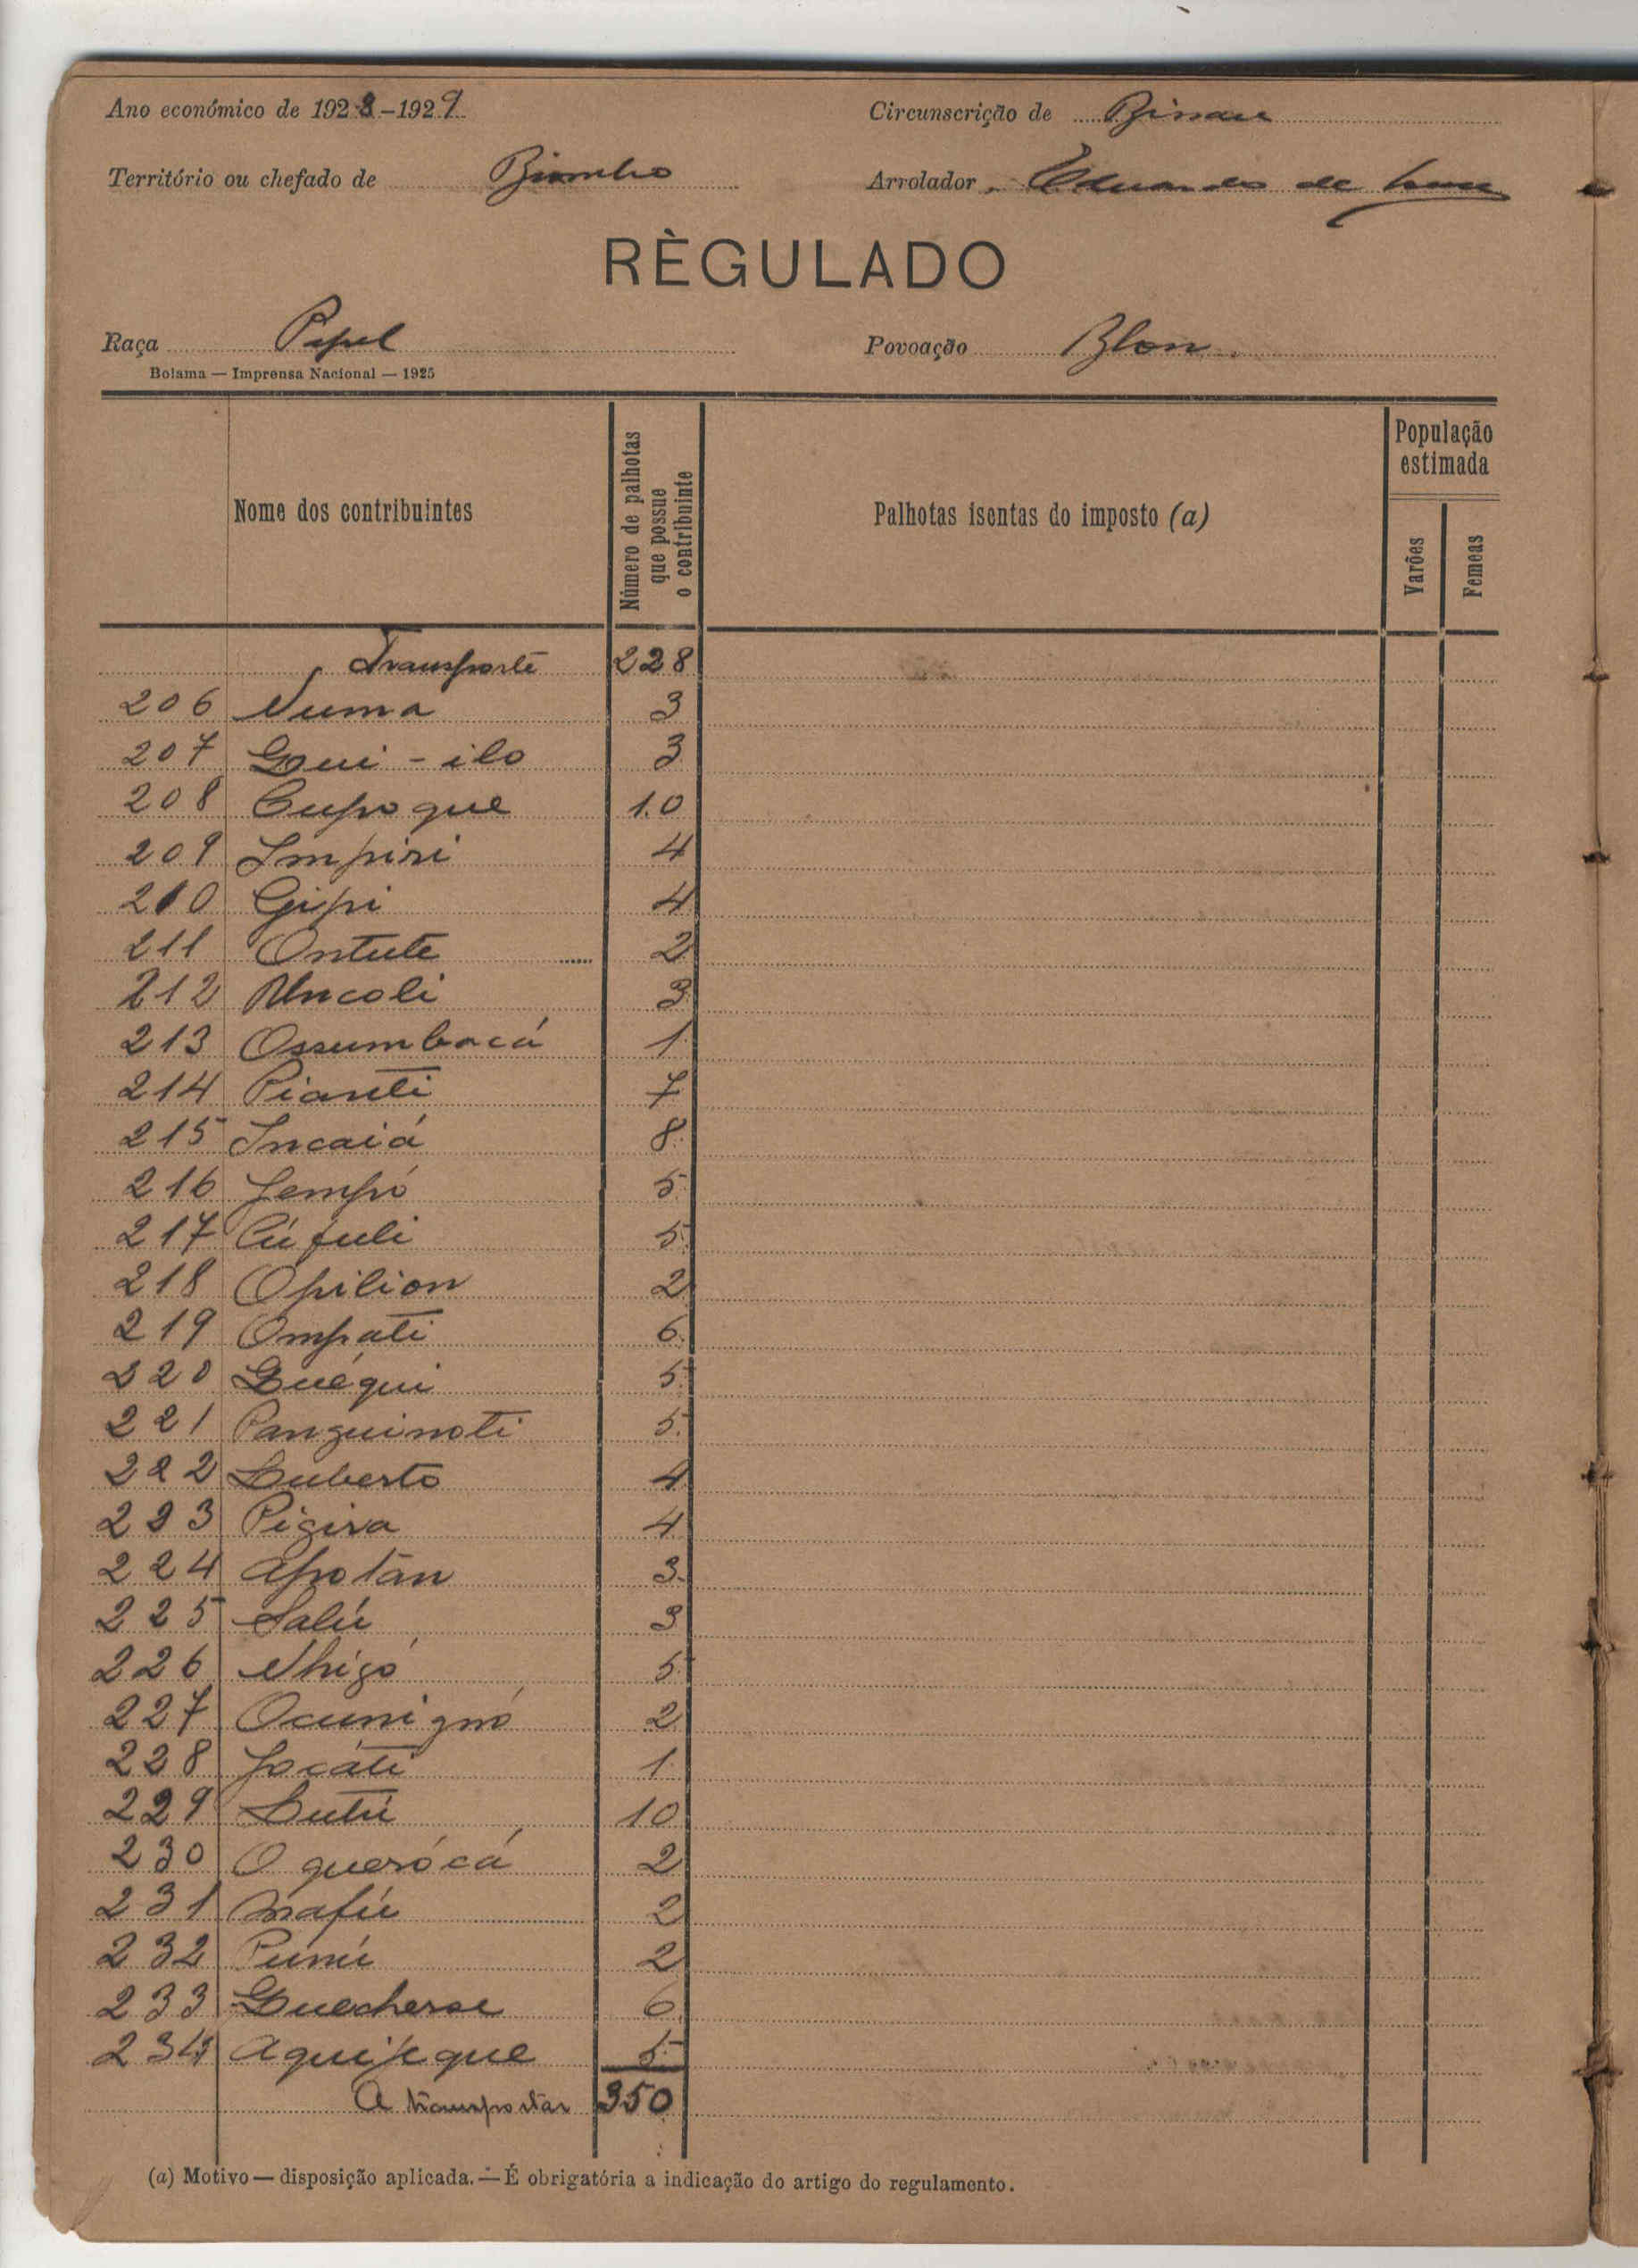 Ano económico de 1928-1929
Circunscrição de Bissau
Território ou chefado de Biombo
Arrolador de
RÈGULADO
Raça Papel
Povoação Blon.
Bolama — Imprensa Nacional — 1925
Nome dos contribuintes
Número de palhotas que possue o contribuinte
Palhotas isentas do imposto (a)
População estimada
Varões
Femeas
Transporte 228
206 Numa 3
207 Gui - ilo 3
208 Cupoque 10
209 Impiri 4
210 Gipi 4
211 Ontute 2
212 Uncoli 3
213 Ossumbacá 1
214 Pianti 7
215 Incaiá 8
216 Jempó 5
217 Cúfuli 5
218 Opilion 2
219 Ompati 6
220 Guégui 5
221 Panguinoti 5
222 Luberto 4
223 Pigira 4
224 Apotan 3
225 Salú 3
226 Nhigó 5
227 2
228 Jocáti 1
229 Lutú 10
230 O querócá 2
231 Mafú 2
232 Punú 2
233 6
234 Aquijeque 5
A transportar 350
(a) Motivo — disposição aplicada. — É obrigatória a indicação do artigo do regulamento.